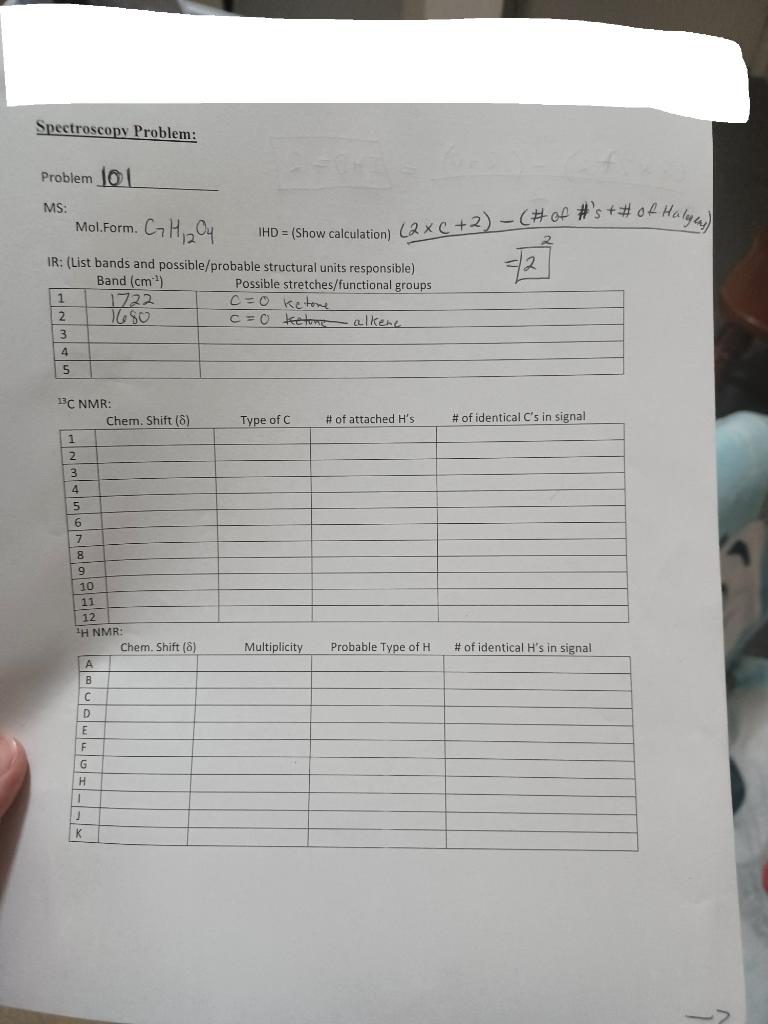 Spectroscopy Problem:
Problem 101
MS:
Mol.Form. C7H12O4 IHD = (Show calculation) (2 x C + 2) - (# of #'s + # of Halogens)
2
= 2
IR: (List bands and possible/probable structural units responsible)
Band (cm-1) Possible stretches/functional groups
1 1722 C=O ketone
2 1680 C=O ketone alkene
3
4
5
13C NMR:
Chem. Shift (δ) Type of C # of attached H's # of identical C's in signal
1
2
3
4
5
6
7
8
9
10
11
12
1H NMR:
Chem. Shift (δ) Multiplicity Probable Type of H # of identical H's in signal
A
B
C
D
E
F
G
H
I
J
K